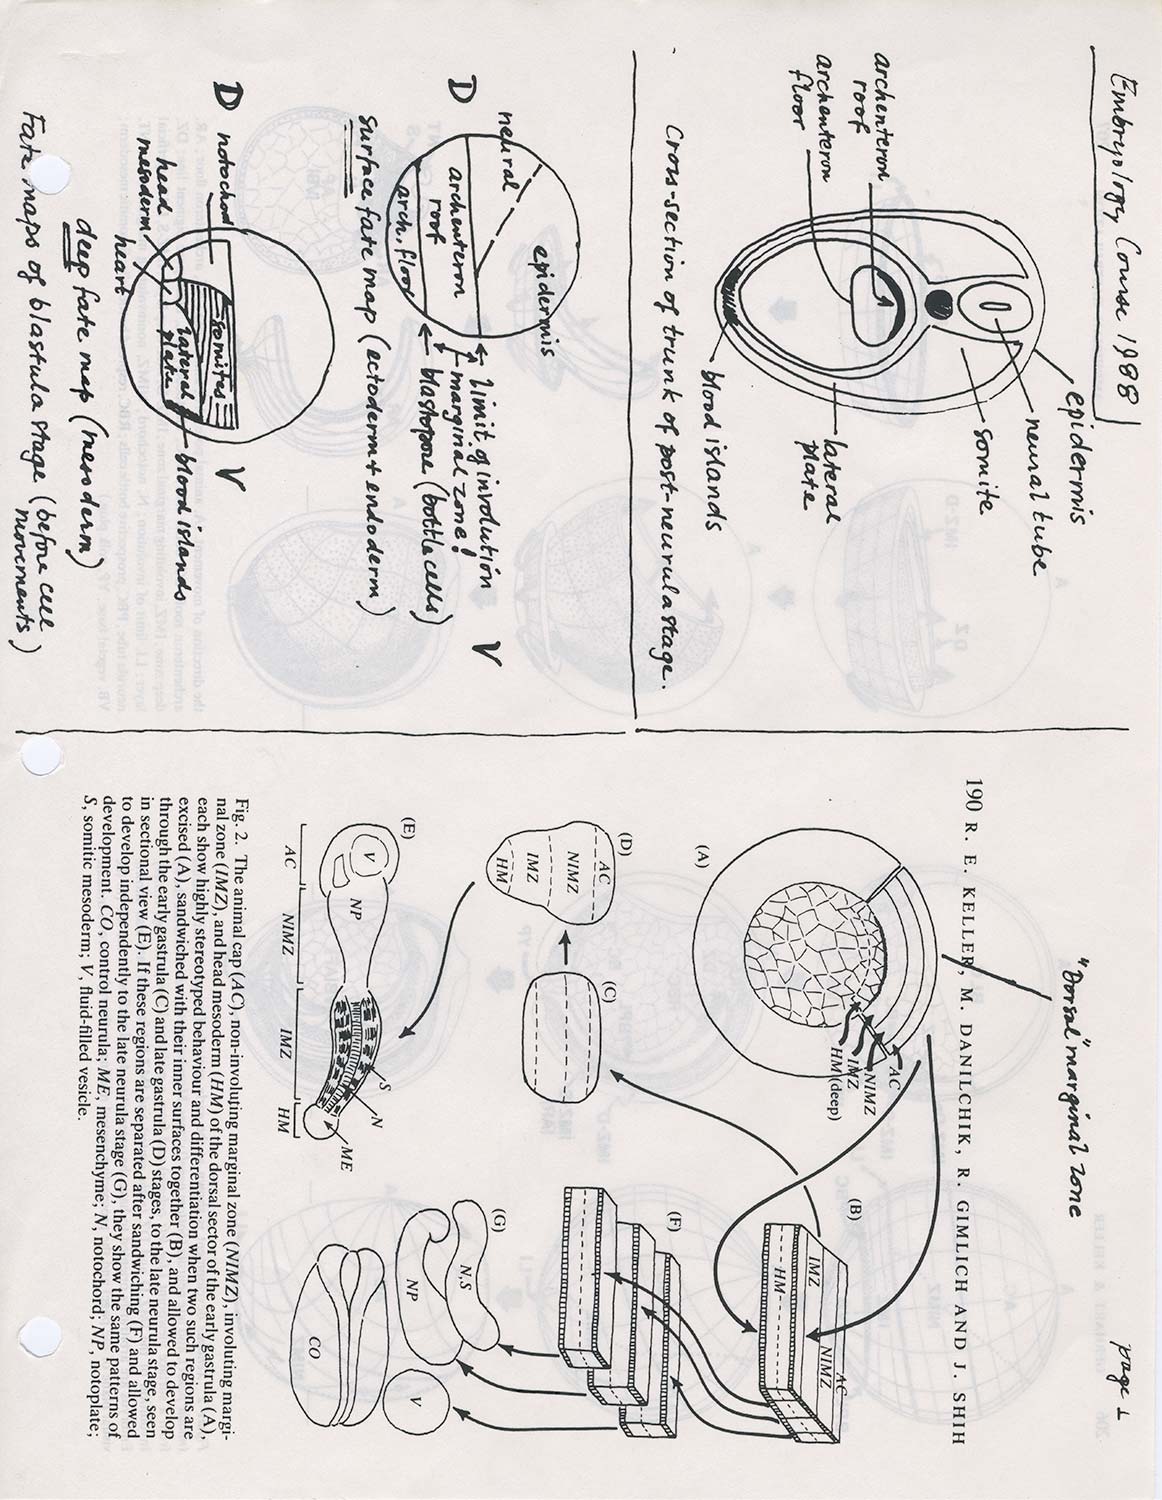 Embryology Course 1988
page 1
epidermis
neural tube
somite
archenteron
roof
archenteron
floor
lateral
plate
blood islands
Cross-section of trunk of post-neurula stage.
neural
epidermis
D
archenteron
roof
arch. floor
limit of involution
marginal zone!
blastopore (bottle cells)
V
surface fate map (ectoderm + endoderm)
D
notochord
head
mesoderm
heart
somites
lateral
plate
V
blood islands
deep fate map (mesoderm)
Fate maps of blastula stage (before cell
movements)
"Dorsal" marginal zone
190 R. E. KELLER, M. DANILCHIK, R. GIMLICH AND J. SHIH
(A)
AC
NIMZ
IMZ
HM (deep)
(B)
IMZ
HM
AC
NIMZ
(C)
(D)
AC
NIMZ
IMZ
HM
(E)
V
NP
S
N
ME
AC
NIMZ
IMZ
HM
(F)
(G)
N,S
NP
V
CO
Fig. 2. The animal cap (AC), non-involuting marginal zone (NIMZ), involuting margi-
nal zone (IMZ), and head mesoderm (HM) of the dorsal sector of the early gastrula (A),
each show highly stereotyped behaviour and differentiation when two such regions are
excised (A), sandwiched with their inner surfaces together (B), and allowed to develop
through the early gastrula (C) and late gastrula (D) stages, to the late neurula stage, seen
in sectional view (E). If these regions are separated after sandwiching (F) and allowed
to develop independently to the late neurula stage (G), they show the same patterns of
development. CO, control neurula; ME, mesenchyme; N, notochord; NP, notoplate;
S, somitic mesoderm; V, fluid-filled vesicle.